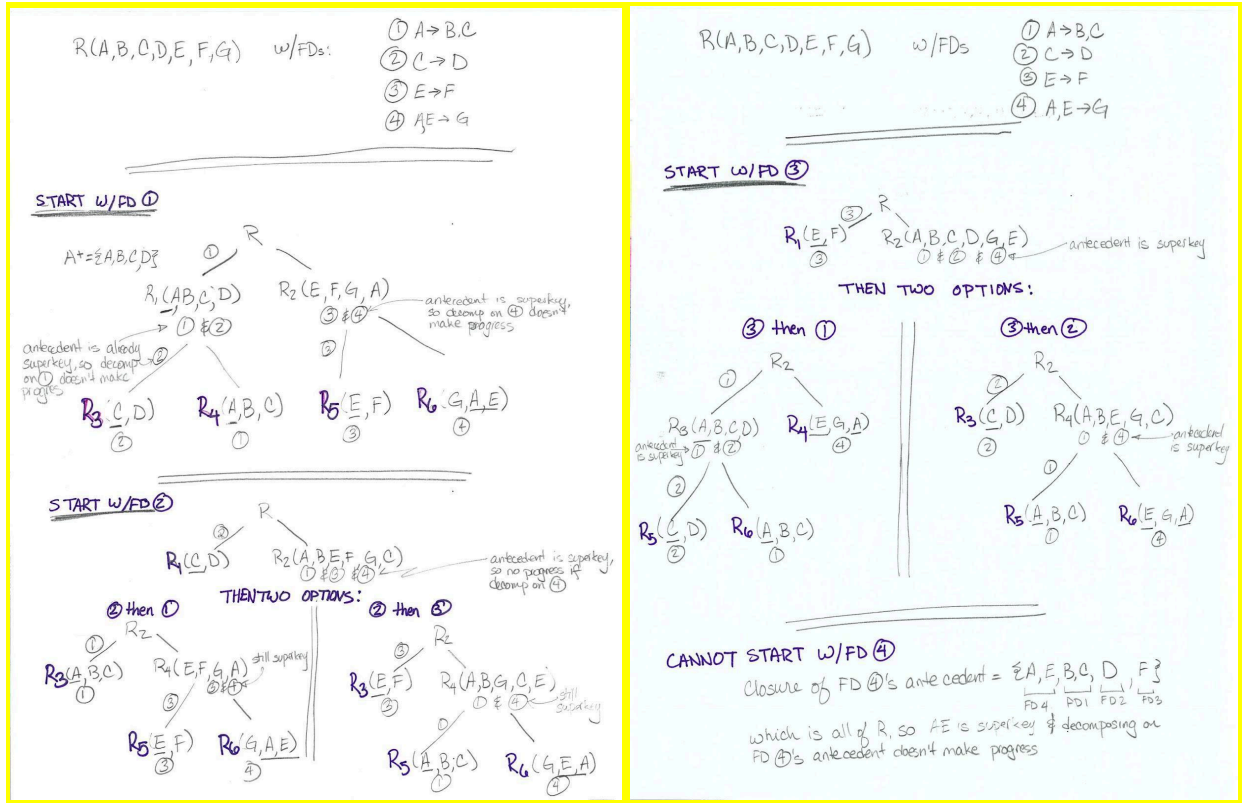 R(A,B,C,D,E,F,G) w/FDs:
① A→B,C
② C→D
③ E→F
④ A,E→G
START W/FD ①
R
①
A+={A,B,C,D}
R₁(A,B,C,D) R₂(E,F,G,A)
① & ② ③ & ④
antecedent is superkey,
so decomp on ④ doesn't
make progress
antecedent is already
superkey, so decomp
on ① doesn't make
progres
② ③
R3(C,D) R4(A,B,C) R5(E,F) R6(G,A,E)
② ① ③ ④
START W/FD ②
R
②
R₁(C,D) R₂(A,B,E,F,G,C)
① & ③ & ④
antecedent is superkey,
so no progress if
decomp on ④
THEN TWO OPTIONS:
② then ①
R₂
①
R3(A,B,C) R4(E,F,G,A) still superkey
① ③ & ④
③
R5(E,F) R6(G,A,E)
③ ④
② then ③
R₂
③
R3(E,F) R4(A,B,G,C,E)
③ ① & ④
still
superkey
①
R5(A,B,C) R6(G,E,A)
① ④
R(A,B,C,D,E,F,G) w/FDs
① A→B,C
② C→D
③ E→F
④ A,E→G
START W/FD ③
③ R
R1(E,F) R2(A,B,C,D,G,E)
③ ① & ② & ④
antecedent is superkey
THEN TWO OPTIONS:
③ then ①
R2
①
R3(A,B,C,D) R4(E,G,A)
① & ② ④
antecedent
is superkey
②
R5(C,D) R6(A,B,C)
② ①
③ then ②
R2
②
R3(C,D) R4(A,B,E,G,C)
② ① & ④
antecedent
is superkey
①
R5(A,B,C) R6(E,G,A)
① ④
CANNOT START W/FD ④
Closure of FD ④'s antecedent = {A, E, B,C, D, F}
FD4 FD1 FD2 FD3
which is all of R, so AE is superkey & decomposing on
FD ④'s antecedent doesn't make progress